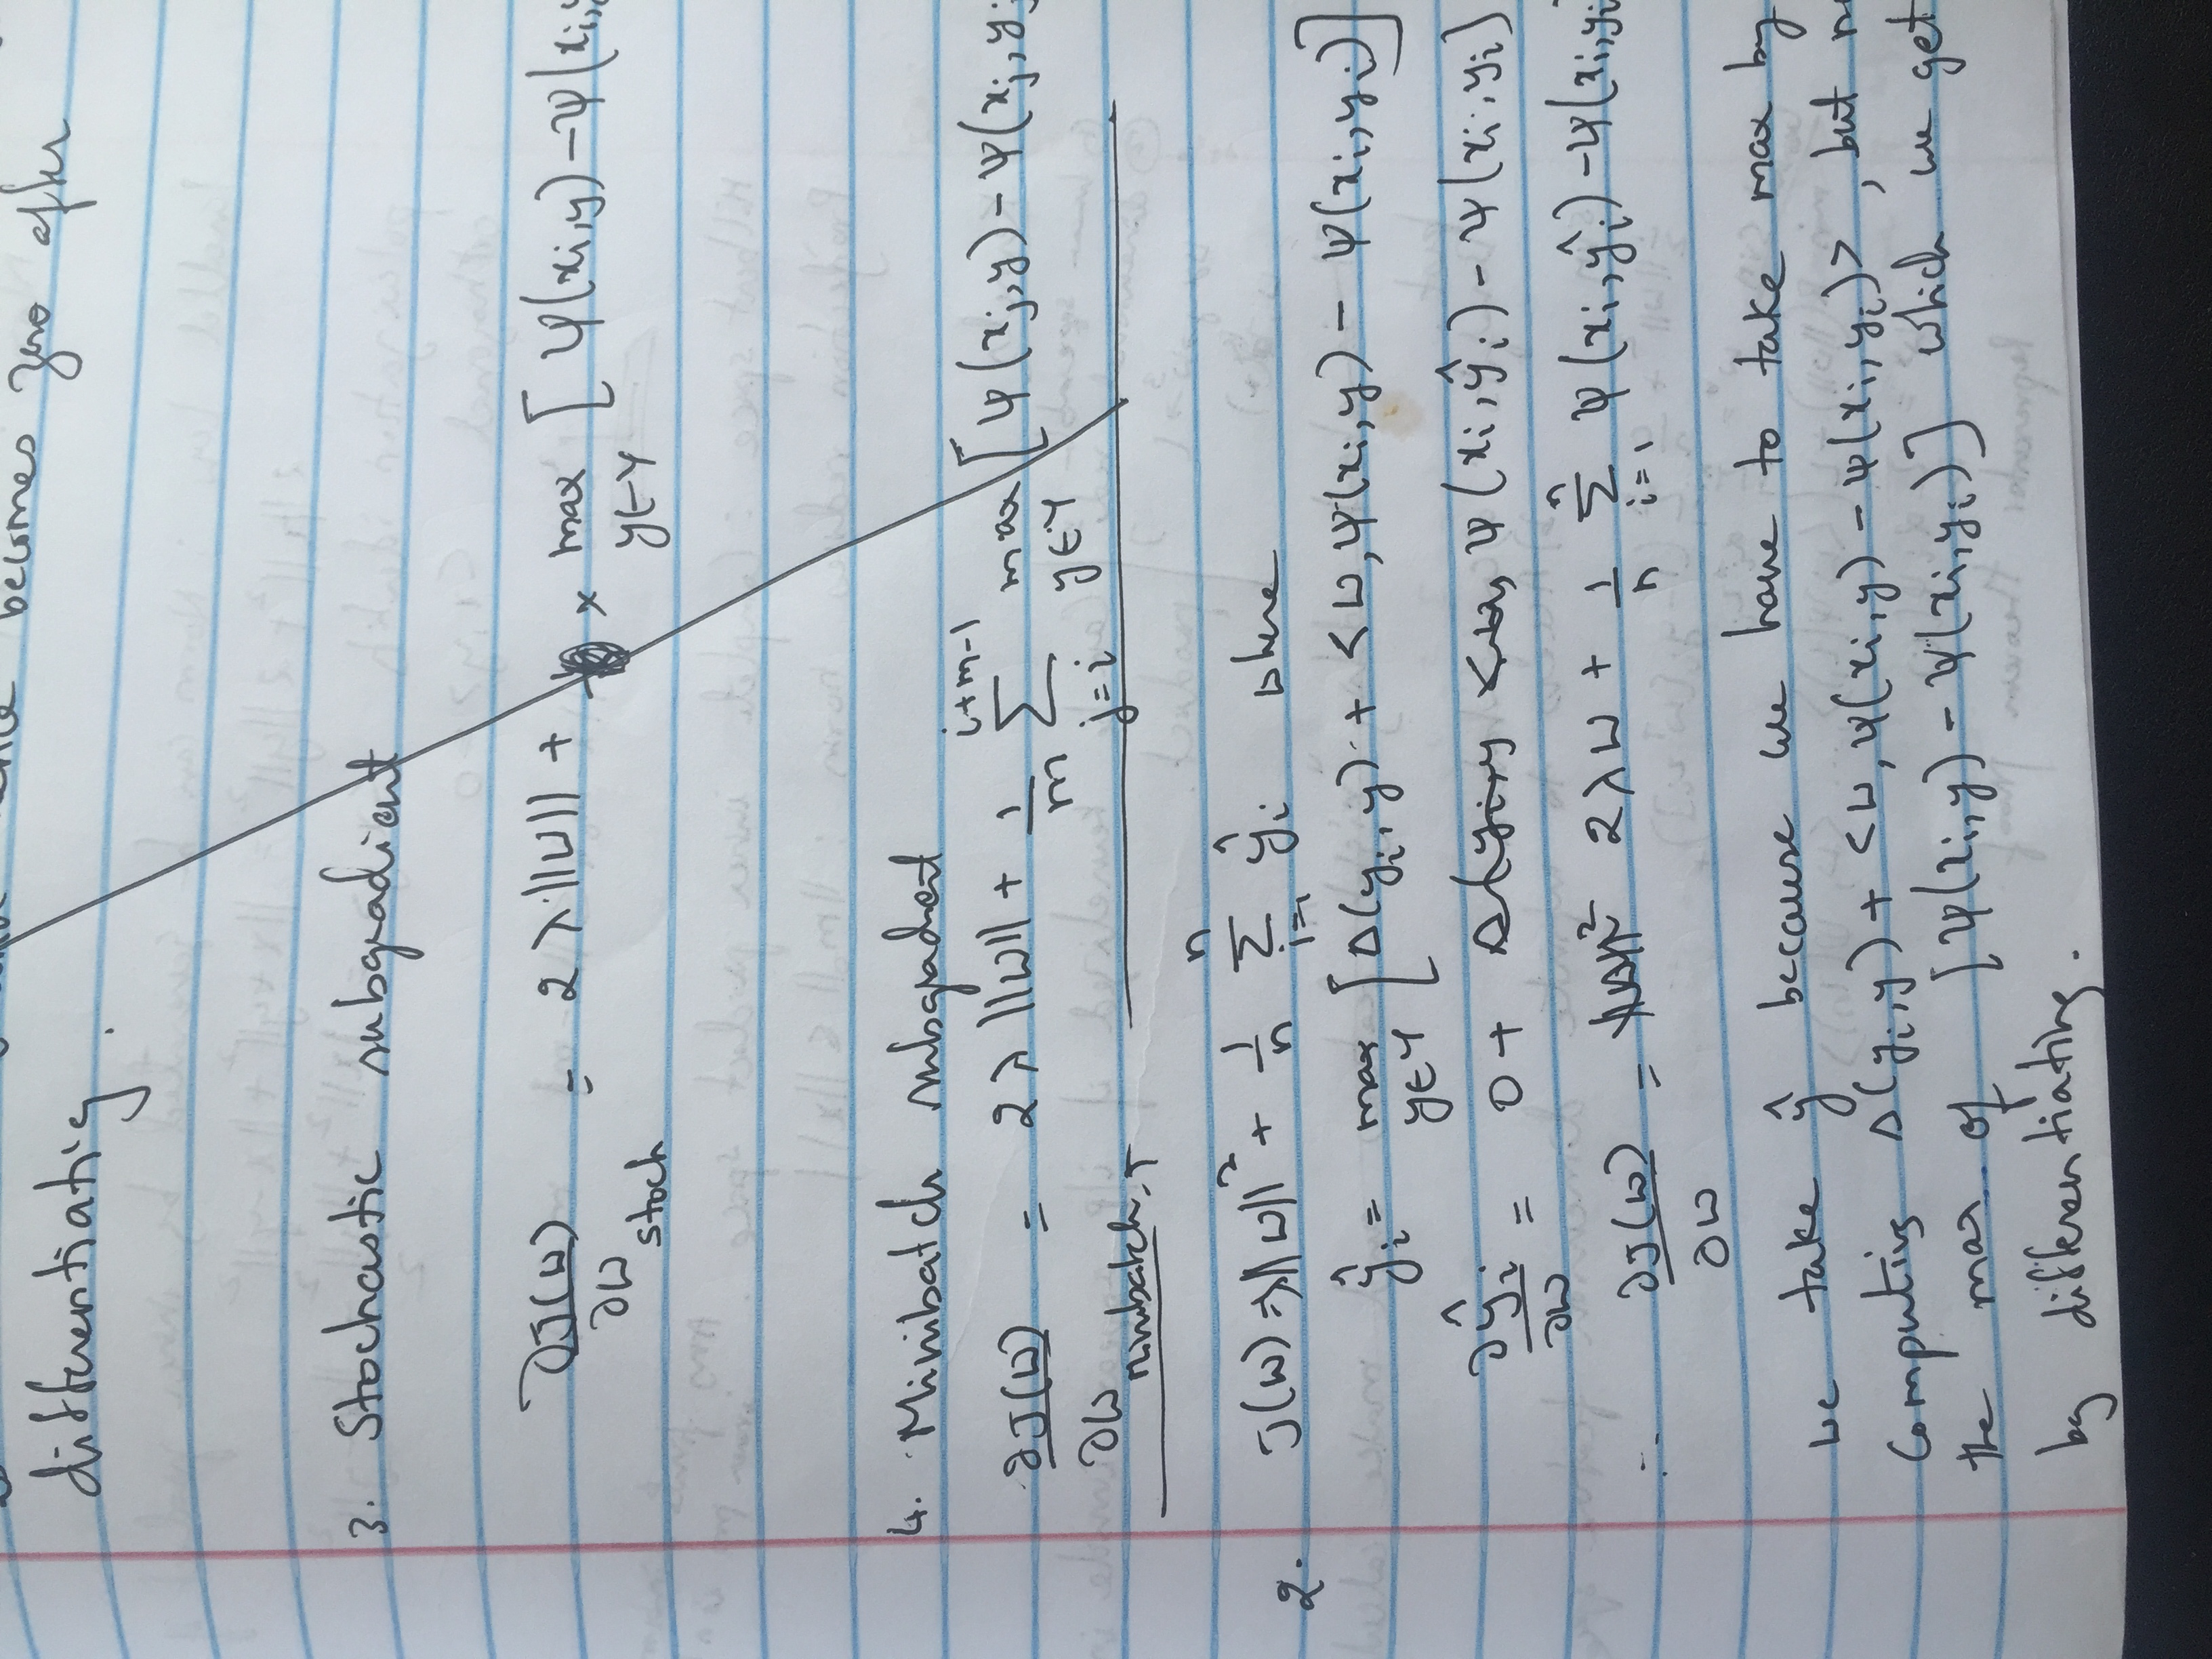 becomes zero after
differentiatig.
3. Stochastic subgradient
∂J(w)/∂w stoch = 2 λ ||w|| + × max y∈Y [ Ψ(xi,y) – Ψ(xi,
4. Minibatch subgradient
∂J(w)/∂w minibatch = 2 λ ||w|| + 1/m Σ j=i i+m-1 max y∈Y [ Ψ(xj,y) – Ψ(xj,yj
2. J(w) = λ||w||² + 1/n Σ i=1 n ŷi where
ŷi = max y∈Y [ Δ(yi,y) + <w,Ψ(xi,y) – Ψ(xi,yi)]
∂ŷi/∂w = 0 + Δ(yi,y <w, Ψ(xi,ŷi) – Ψ(xi,yi)
∴ ∂J(w)/∂w = ||w||² 2λw + 1/n Σ i=1 n Ψ(xi,ŷi) – Ψ(xi,yi
we take ŷ because we have to take max by
computing Δ(yi,y) + <w,Ψ(xi,y) – Ψ(xi,yi)>, but
the max of [Ψ(xi,y) – Ψ(xi,yi)] which we get
by differentiating.